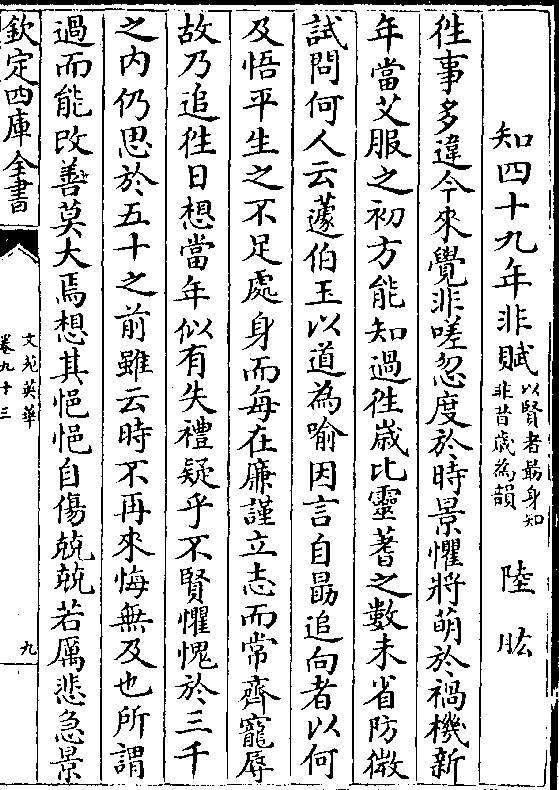 知四十九年非賦 以賢者勗身知非昔歲為韻 陸肱
徃事多違今來覺非嗟忽度於時景懼將萌於禍機新
年當艾服之初方能知過徃嵗比靈蓍之數未省防微
試問何人云蘧伯玉以道為喻因言自勗追向者以何
及悟平生之不足處身而每在廉謹立志而常齊寵辱
故乃追徃日想當年似有失禮疑乎不賢懼愧於三千
之内仍思於五十之前雖云時不再來悔無及也所謂
過而能改善莫大焉想其悒悒自傷兢兢若厲悲急景
欽定四庫全書
文苑英華
卷九十三
九